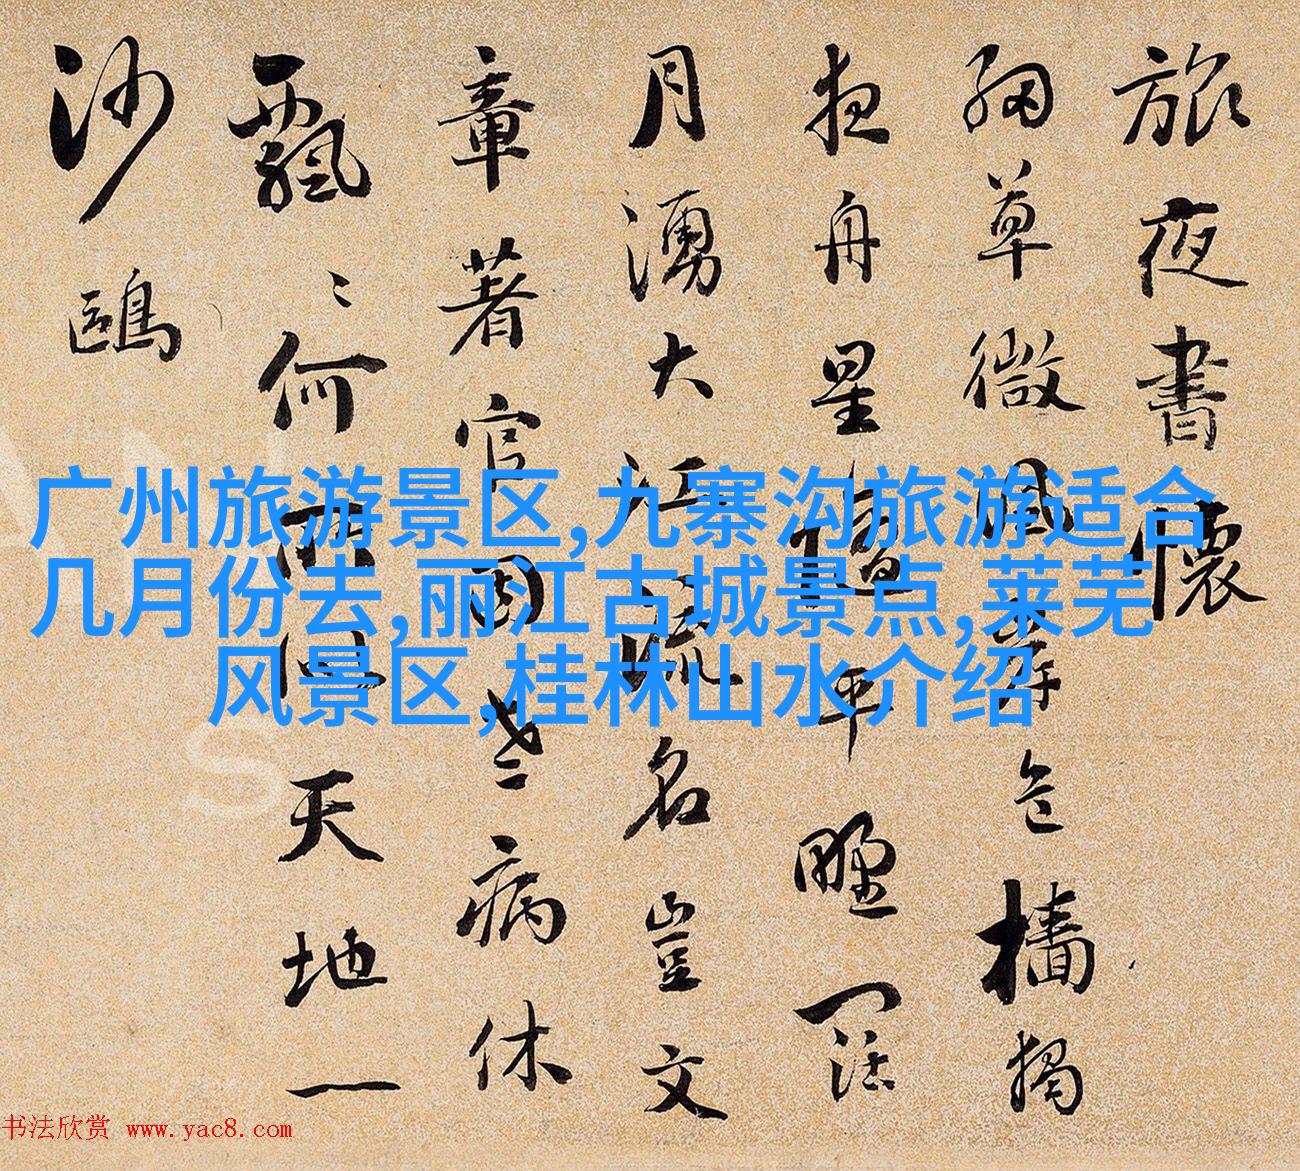 旅夜書懷
細草微風岸危檣獨
夜舟星垂平野闊
月湧大江流名豈文
章著官因老病休
飄〻何所似天地一
沙鷗
广州旅游景区,九寨沟旅游适合
几月份去,丽江古城景点,莱芜
风景区,桂林山水介绍
书法欣赏 www.yac8.com